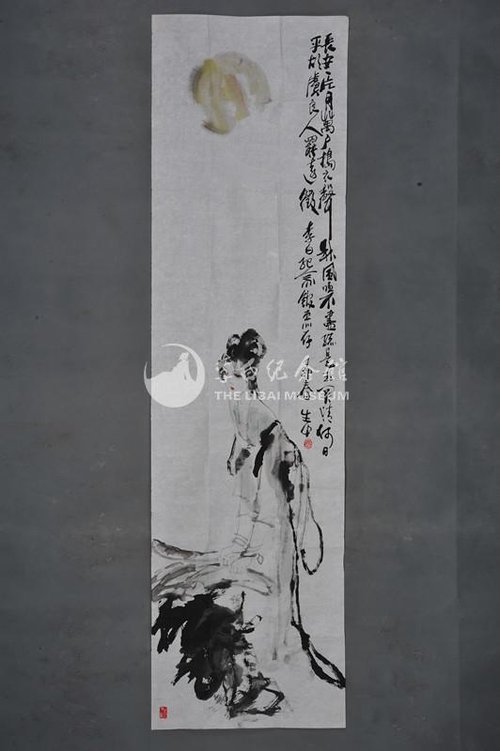 長安一片月萬户搗衣聲秋風吹不盡總是玉關情何日
平胡虜良人罷遠徵 李白纪念館
李白纪念馆
THE LIBAI MUSEUM